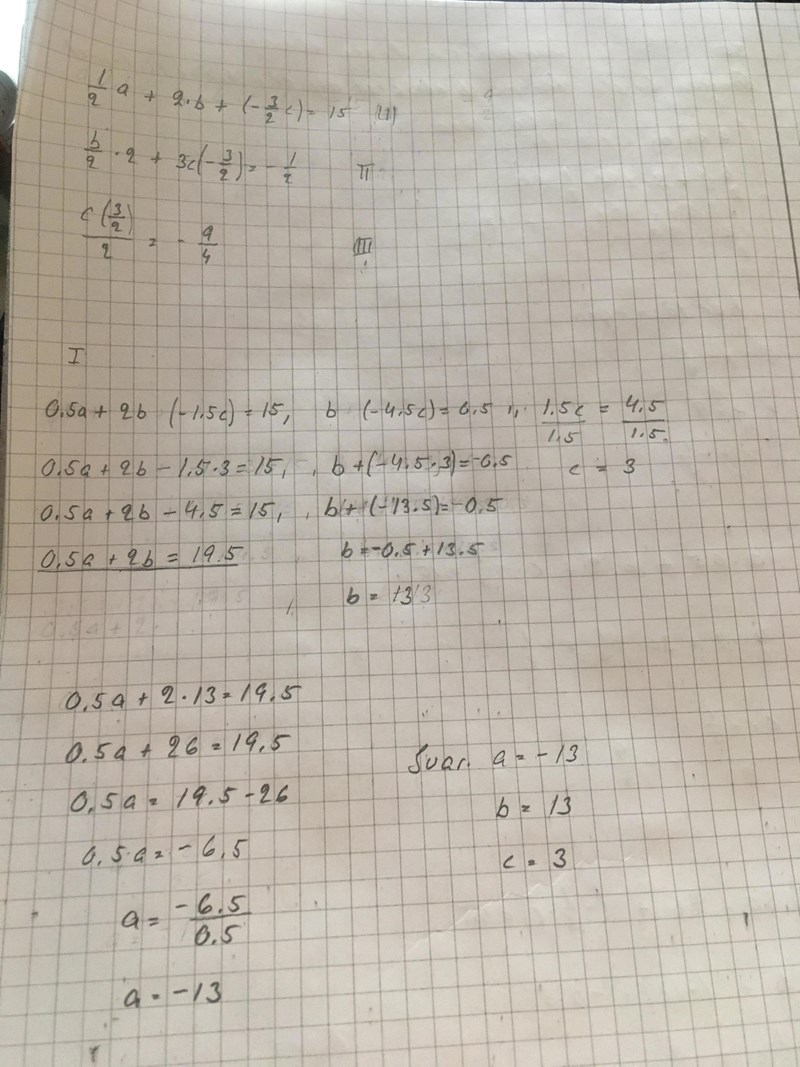 1/2 a + 2·b + (-3/2 c) = 15 (I)
b/2 · 2 + 3c(-3/2) = -1/2 II
c(3/2)/2 = -9/4 III
I
0,5a + 2b (-1.5c) = 15, b (-4,5c) = 0.5 ,, 1.5c/1.5 = 4.5/1.5
0.5a + 2b - 1.5·3 = 15, , b + (-4,5·3) = -0.5 c = 3
0.5a + 2b - 4,5 = 15, , b + (-13.5) = -0.5
0,5a + 2b = 19.5 b = -0.5 + 13.5
b = 13
0,5a + 2·13 = 19.5
0.5a + 26 = 19,5
0,5a = 19.5 - 26
0,5a = -6,5
a = -6.5/0.5
a = -13
Svar. a = -13
b = 13
c = 3